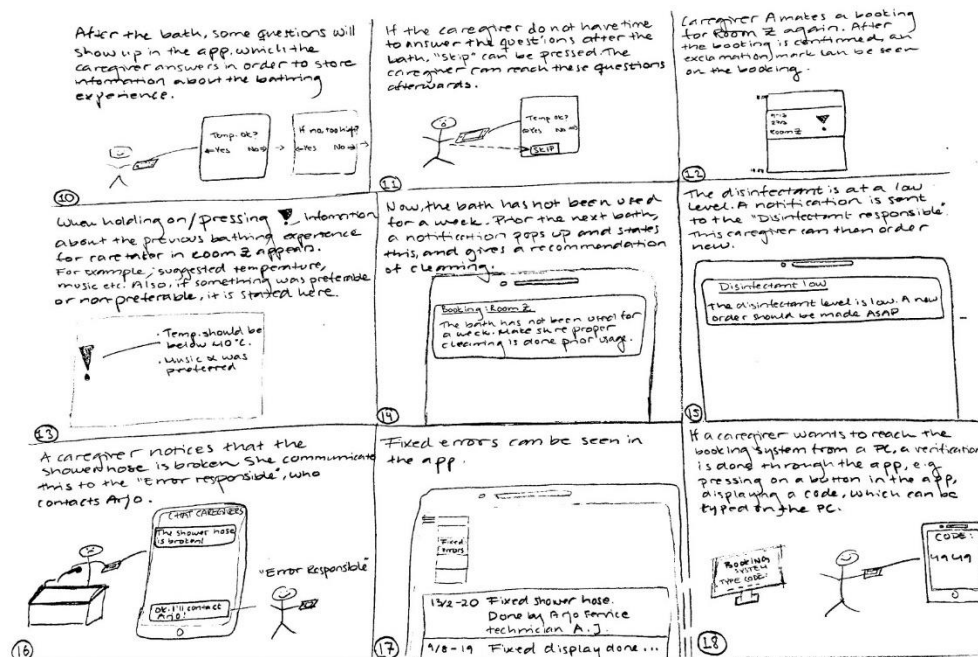 After the bath, some questions will
show up in the app, which the
caregiver answers in order to store
information about the bathing
experience.
Temp. ok?
Yes No
If no, too high?
Yes No
10
If the caregiver do not have time
to answer the questions after the
bath, "skip" can be pressed. The
caregiver can reach these questions
afterwards.
Temp ok?
Yes No
SKIP
11
Caregiver A makes a booking
for Room Z again. After
the booking is confirmed, an
exclamation mark can be seen
on the booking.
Room Z
!
12
When holding on/pressing ! information
about the previous bathing experience
for caretaker in room Z appears.
For example; suggested temperature,
music etc. Also, if something was preferable
or non preferable, it is stated here.
!
· Temp. should be
below 40°C.
· Music α was
preferred
13
Now, the bath has not been used
for a week. Prior the next bath,
a notification pops up and states
this, and gives a recommendation
of cleaning.
Booking: Room Z
The bath has not been used for
a week. Make sure proper
cleaning is done prior usage.
14
The disinfectant is at a low
level. A notification is sent
to the "Disinfectant responsible".
This caregiver can then order
new.
Disinfectant low
The disinfectant level is low. A new
order should be made ASAP
15
A caregiver notices that the
shower hose is broken. She communicate
this to the "Error responsible", who
contacts Arjo.
CHAT CAREGIVERS
The shower hose
is broken!
Ok. I'll contact
Arjo!
"Error Responsible"
16
Fixed errors can be seen in
the app.
Fixed
errors
13/2-20 Fixed shower hose.
Done by Arjo service
technician A.J.
9/8-19 Fixed display done...
17
If a caregiver wants to reach the
booking system from a PC, a verification
is done through the app, e.g.
pressing on a button in the app,
displaying a code, which can be
typed on the PC.
BOOKING
SYSTEM
TYPE CODE:
CODE:
4949
18